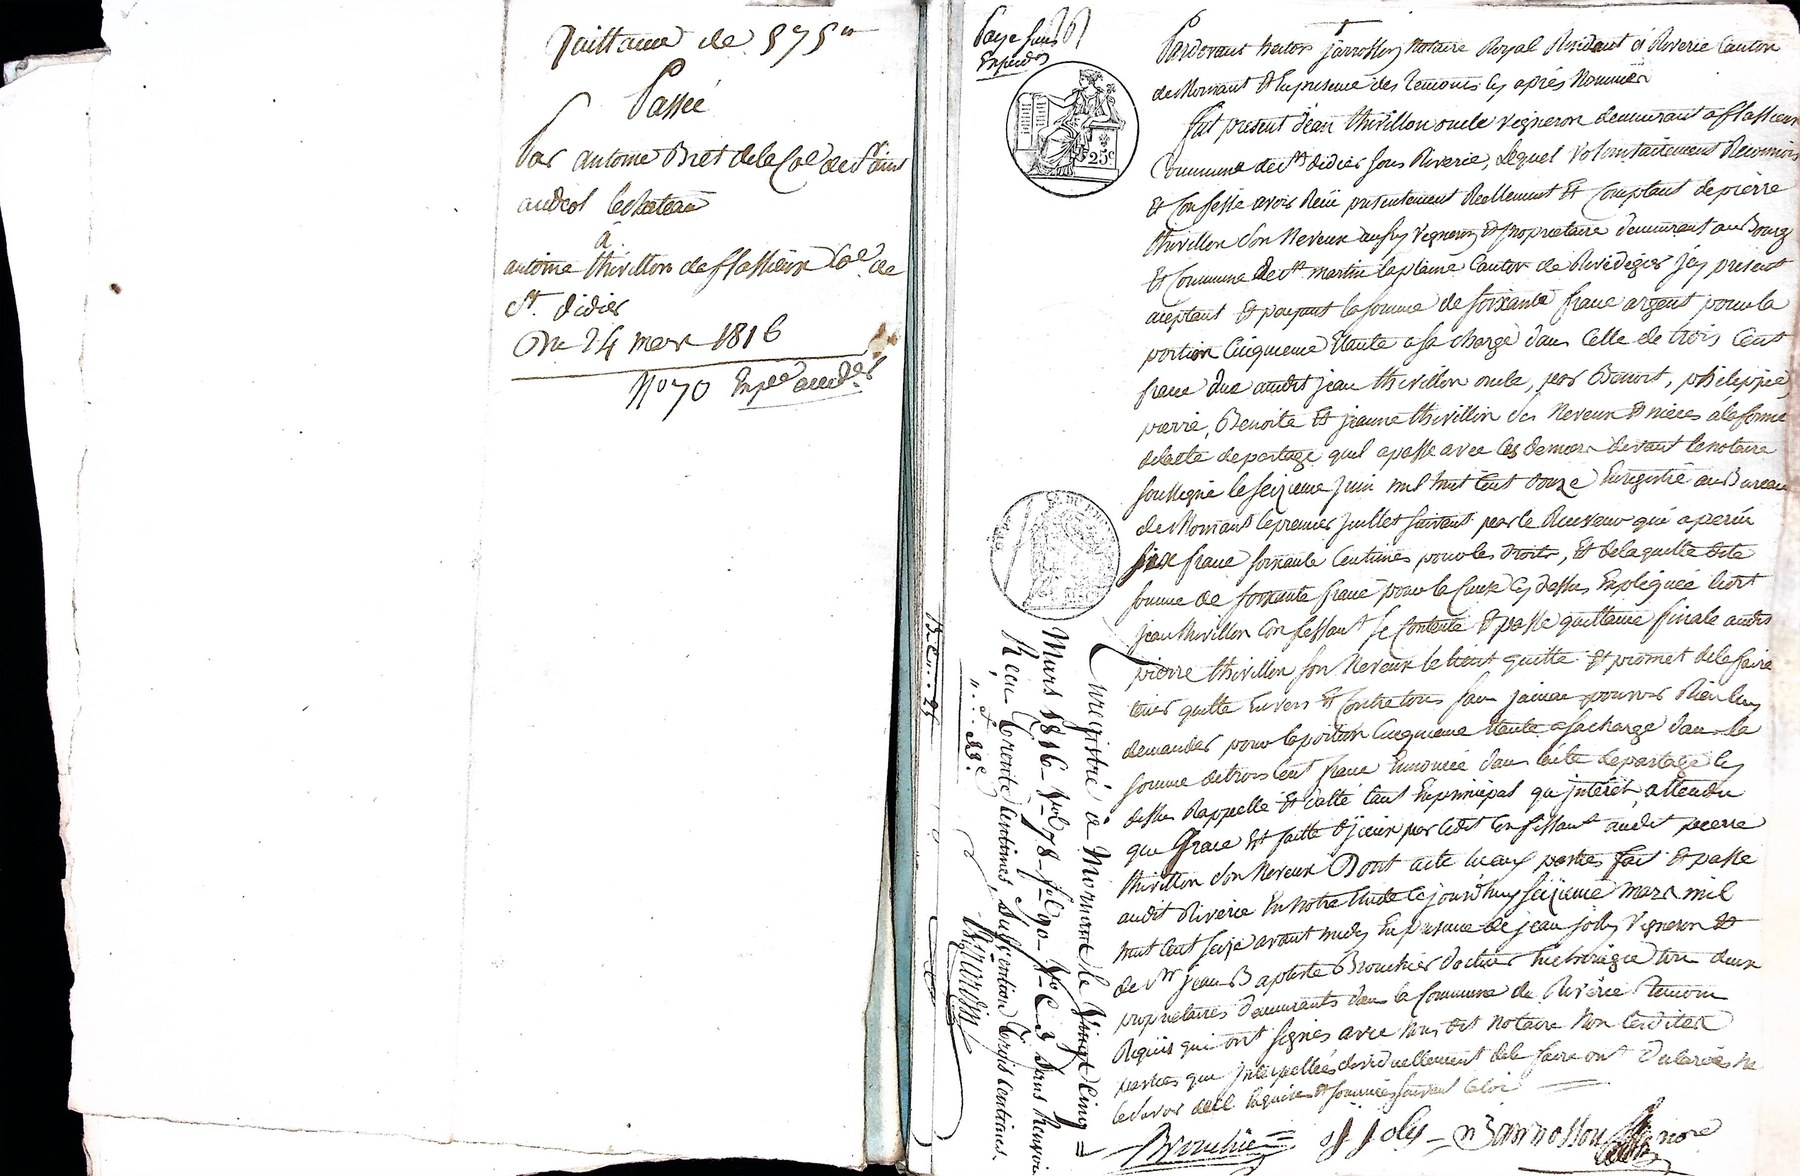 Quittance de 575 "
Passée
Par antoine Briet de la Coe de St
andeol lechateau
à
antoine thivillon de flassieux Coe de
St. didier
Du 24 mars 1816
No 70 Expée aux des
Paye
Expedon
25c
Pardevant hector Jarrosson Notaire Royal Résidant à Riverie Canton
de Mornant Et En presence des Temoins cy après Nommés
fut present Jean thivillon oncle vigneron demeurant a flassieux
Commune de St didier sous Riverie, Lequel volontairement Reconnois
Et Confesse avoir Reçu presentement Reellement Et Comptant de pierre
thivillon son Neveux aussy vigneron Et proprietaire demeurant au Bourg
Et Commune de St martin laplaine Canton de Rivedegier icy present
aceptant Et payant la somme de soixante franc argent pour la
portion Cinquieme Etante a sa charge dans Celle de trois Cent
franc due audit jean thivillon oncle, par Benoit, philippe
pierre, Benoite Et jeanne thivillon ses Neveux et nieces à la forme
delacte departage quil apassé avec Ces derniers devant lenotaire
soussigné le seizieme Juin mil huit Cent douze Enregistré au Bureau
de Mornant le premier Juillet suivant par le Receveur qui a perçu
six franc soixante Centimes pour les droits, Et de laquelle dite
somme de soixante franc pour la Cause Cy dessus Expliquée ledit
jean thivillon Confessant se Contente Et passe quittance finale audit
pierre thivillon son Neveux le tient quitte Et promet de le faire
tenir quitte Envers Et Contre tous sans jamais pouvoir Rien luy
demander pour la portion Cinquieme Etante a sa charge dans la
somme detrois Cent franc Enoncée dans l'acte departage Cy
dessus Rappellé Et datté tant Enprincipal qu'interêt, attendu
que Grace Est faitte d'iceux par ledit Confessant audit pierre
thivillon son Neveux Dont acte lu aux parties fait Et passé
audit Riverie En Notre Etude Cejourd'huy seizieme mars mil
huit Cent seize avant midy En presence de jean joly vigneron Et
de Sr jean Baptiste Brouchier docteur En chirurgie tous deux
proprietaires demeurants dans la Commune de Riverie Temoins
Requis qui ont signés avec Nous dit Notaire Non lesdites
parties que Interpellées individuellement de le faire ont declarées ne
le savoir de ce Enquises Et sommées suivant la loi
Brouchier J Joly Jarrosson nore
Enregistré à Mornant le Vingt Cinq
Mars 1816 vol 78 fol 90 Vo C 3 Sans Renvoi
Reçu Trente Centimes, Subvention Trois Centimes.
" . . f 33c
Bernardin